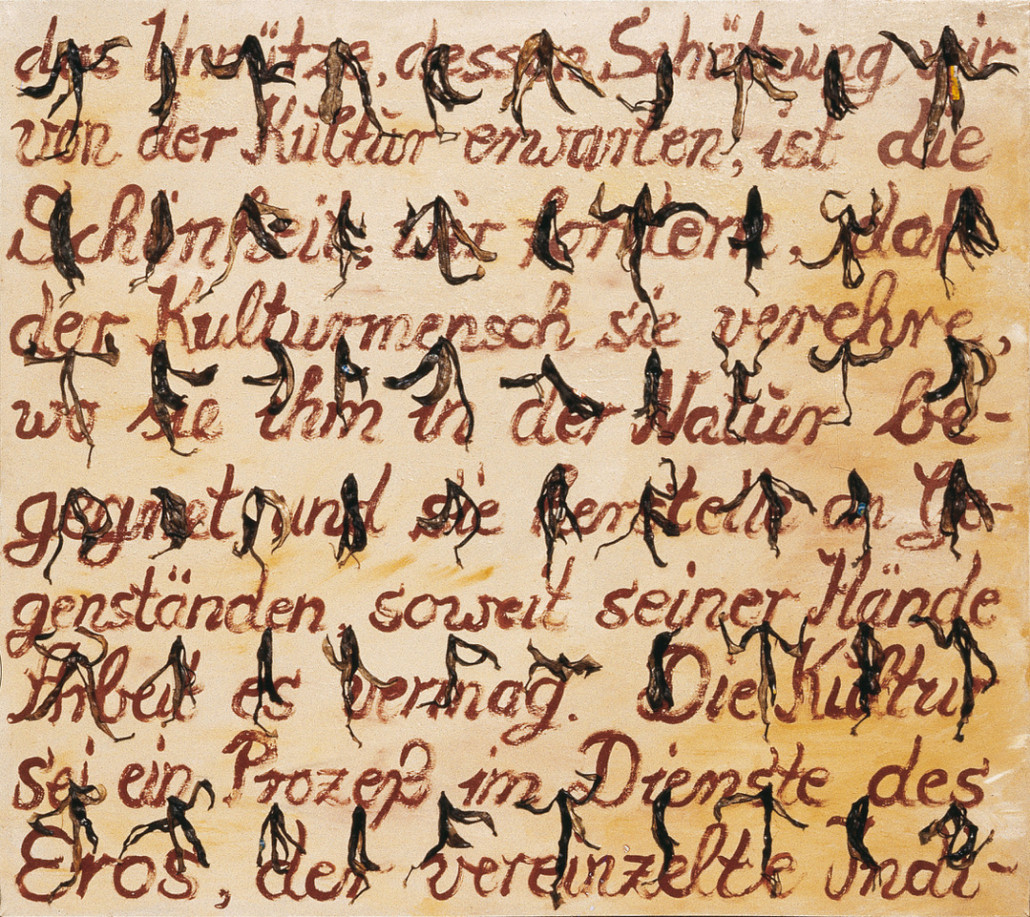 das Unnütze, dessen Schätzung wir
von der Kultur erwarten, ist die
Schönheit; wir fordern, daß
der Kulturmensch sie verehre,
wo sie ihm in der Natur be-
gegnet und sie herstelle an Ge-
genständen, soweit seiner Hände
Arbeit es vermag. Die Kultur
sei ein Prozeß im Dienste des
Eros, der vereinzelte Indi-